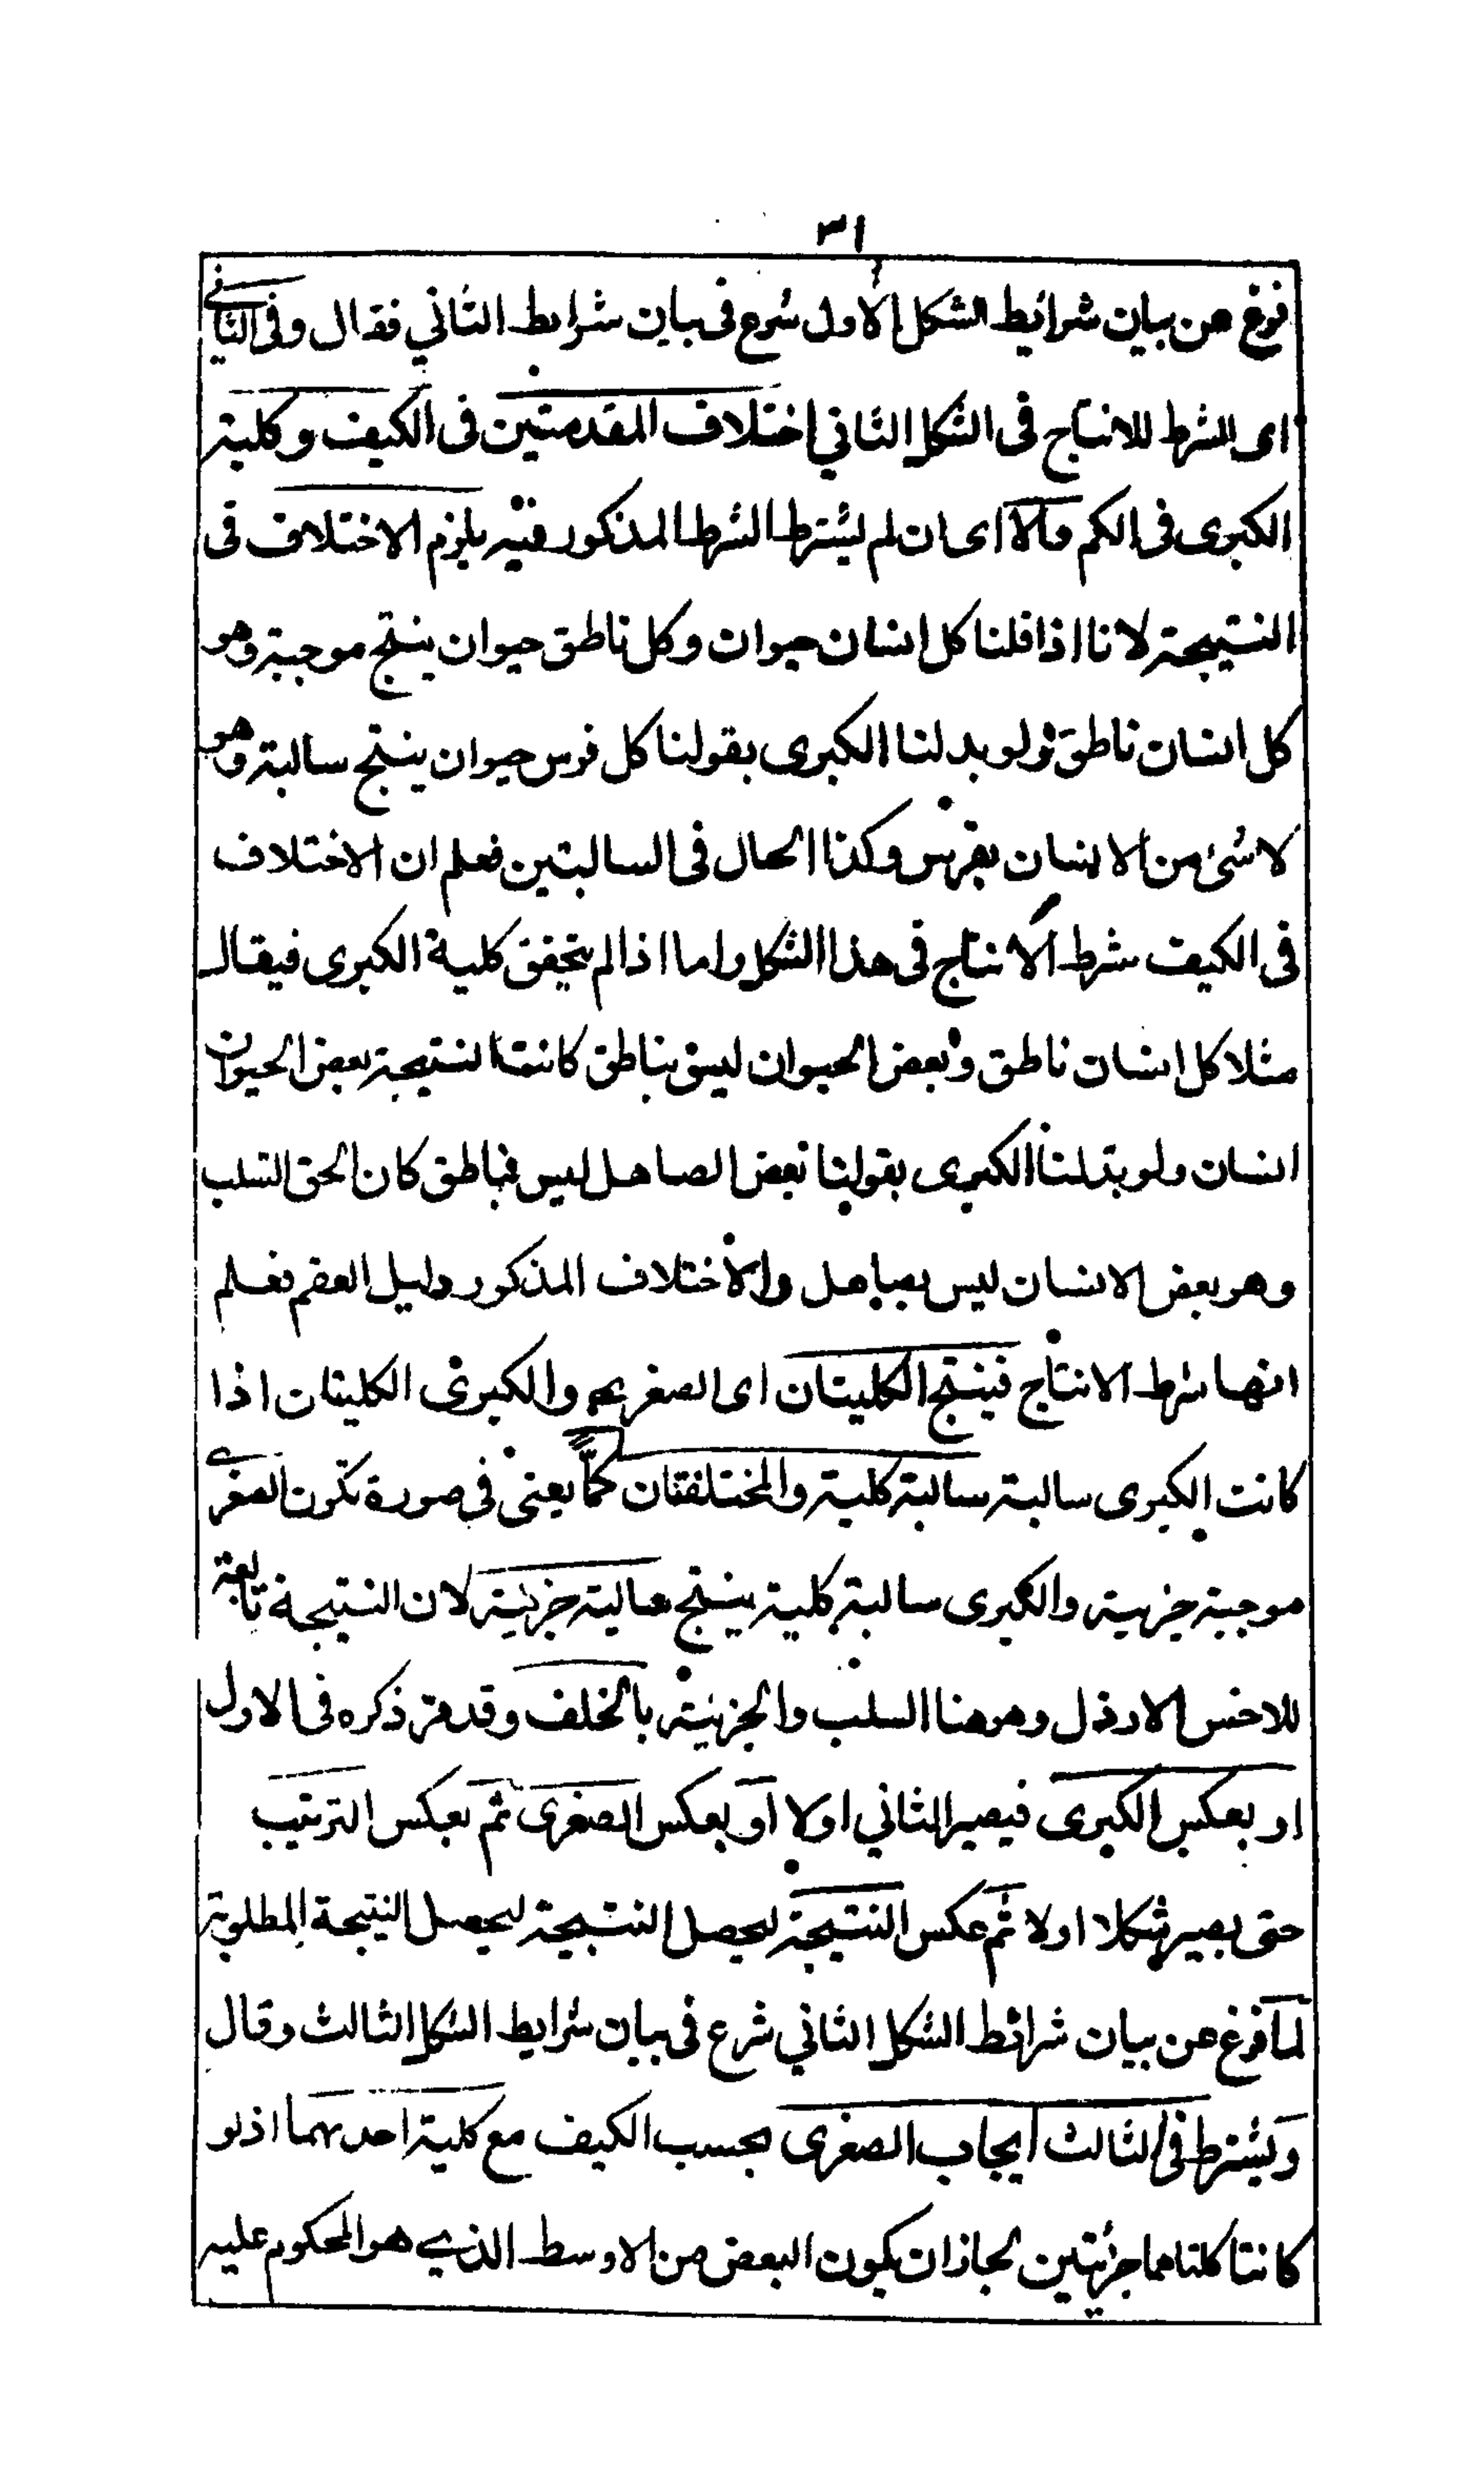 ٣١
فرغ من بيان شرائط الشكل الاول شرع فى بيان شرايط الثاني فقال وفى الثاني
اى الشرط للانتاج فى الشكل الثاني اختلاف المقدمتين فى الكيف وكلية
الكبرى فى الكم والا اى ان لم يشترط الشرط المذكور فيه يلزم الاختلاف فى
النتيجة لانا اذا قلنا كل انسان حيوان وكل ناطق حيوان ينتج موجبة وهو
كل انسان ناطق ولو بدلنا الكبرى بقولنا كل فرس حيوان ينتج سالبة وهو
لا شئ من الانسان بفرس وكذا الحال فى السالبتين فعلم ان الاختلاف
فى الكيف شرط الانتاج فى هذا الشكل واما اذا لم يتحقق كلية الكبرى فيقال
مثلا كل انسان ناطق وبعض الحيوان ليس بناطق كانت النتيجة بعض الحيوان
انسان ولو بدلنا الكبرى بقولنا بعض الصاهل ليس بناطق كان الحق السلب
وهو بعض الانسان ليس بصاهل والاختلاف المذكور دليل العقم فعلم
انها شرط الانتاج فينتج الكليتان اى الصغرى والكبرى الكليتان اذا
كانت الكبرى سالبة سالبة كلية والمختلفتان كمّا يعنى فى صورة تكون الصغرى
موجبة جزئية والكبرى سالبة كلية ينتج سالبة جزئية لان النتيجة تابعة
للاخس الارذل وهو هنا السلب والجزئية بالخلف وقد مر ذكره فى الاول
او بعكس الكبرى فيصير الثاني اولا او بعكس الصغرى ثم بعكس الترتيب
حتى يصير شكلا اولا ثم عكس النتيجة ليحصل النتيجة ليحصل النتيجة المطلوبة
لما فرغ من بيان شرائط الشكل الثاني شرع فى بيان شرايط الشكل الثالث وقال
ويشترط فى الثالث ايجاب الصغرى بحسب الكيف مع كلية احدهما اذ لو
كانتا كلتاهما جزئيتين لجاز ان يكون البعض من الاوسط الذي هو المحكوم عليه